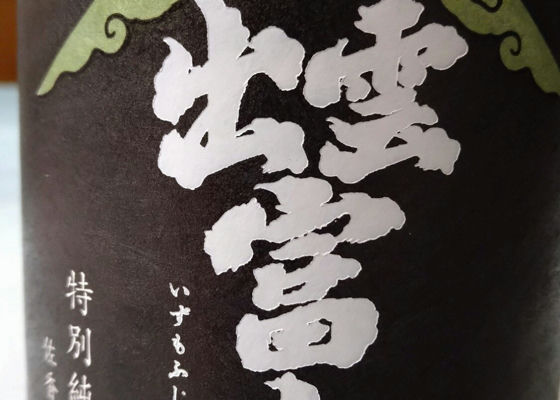 出雲
富
いずもふじ
特別純
佐香